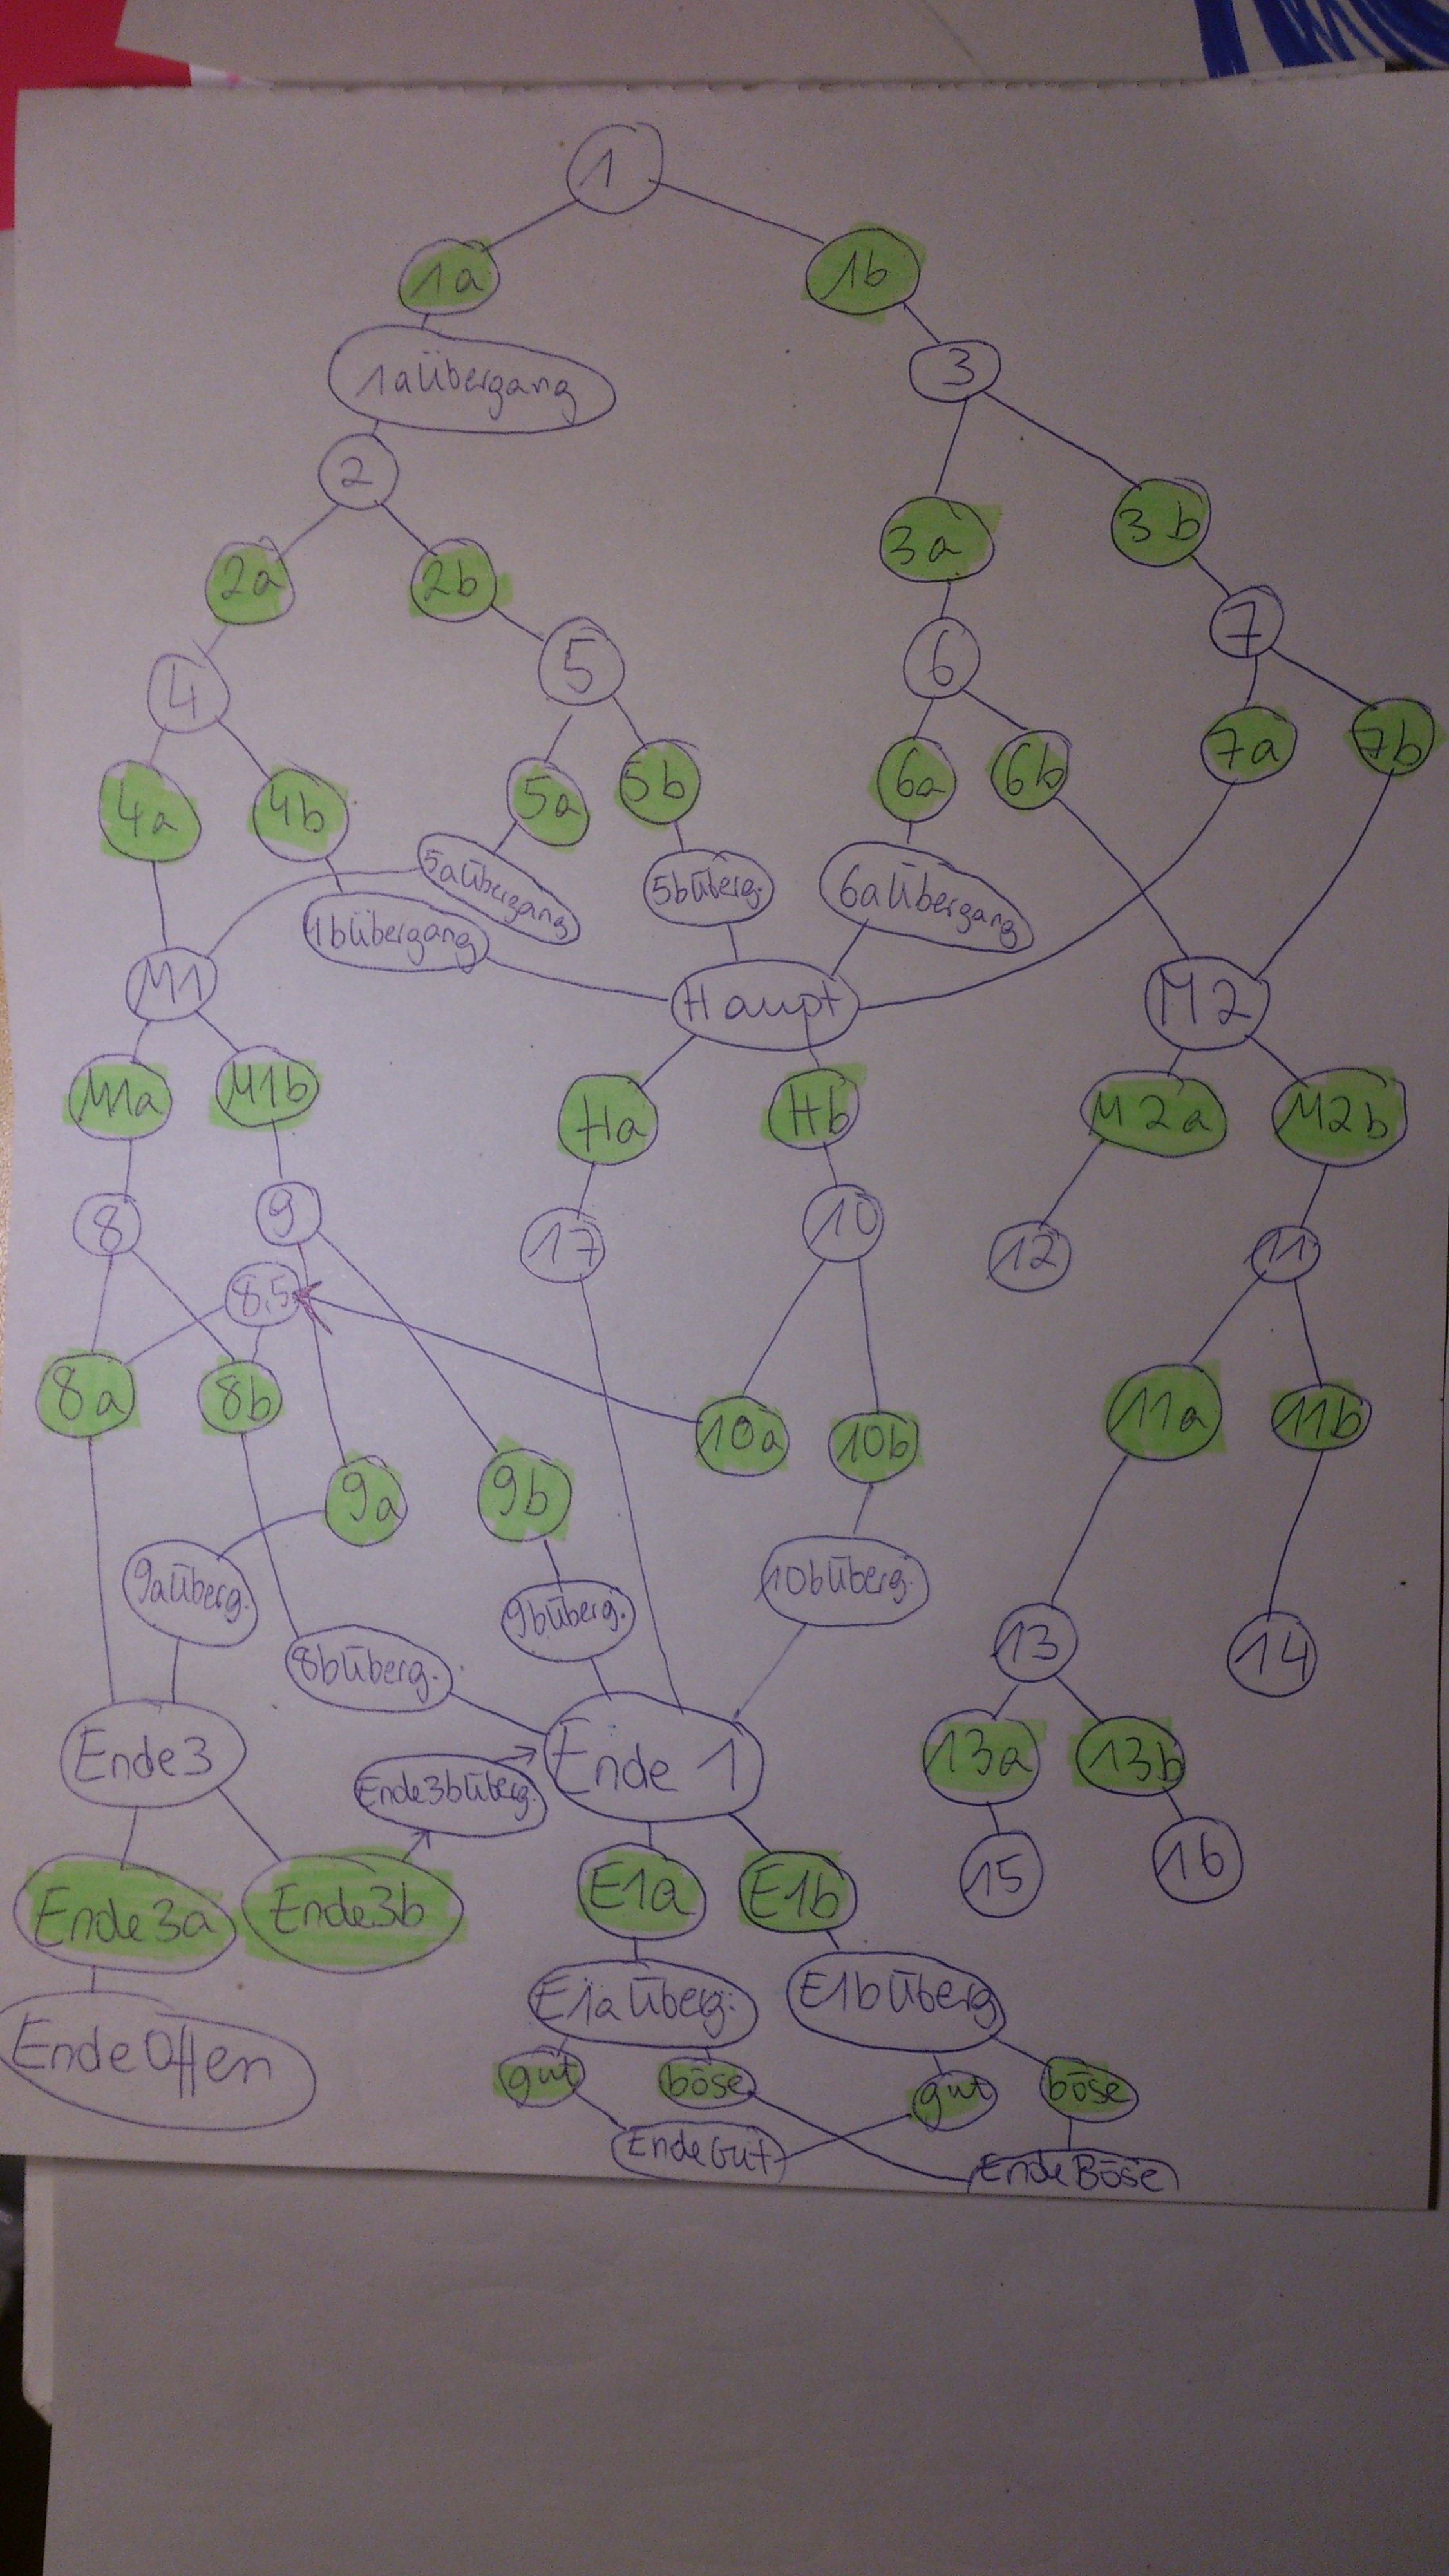 1
1a
1b
1aÜbergang
3
2
2a
2b
3a
3b
4
5
6
7
4a
4b
5a
5b
6a
6b
7a
7b
5aÜbergang
5bÜberg.
6aÜbergang
1bÜbergang
M1
Haupt
M2
M1a
M1b
Ha
Hb
M2a
M2b
8
9
17
10
12
11
8,5
8a
8b
10a
10b
11a
11b
9a
9b
9aÜberg.
9bÜberg.
10bÜberg.
8bÜberg.
13
14
Ende3
Ende3bÜberg.
Ende 1
13a
13b
Ende3a
Ende3b
E1a
E1b
15
16
EndeOffen
E1aÜberg.
E1bÜberg
gut
böse
gut
böse
EndeGut
EndeBöse